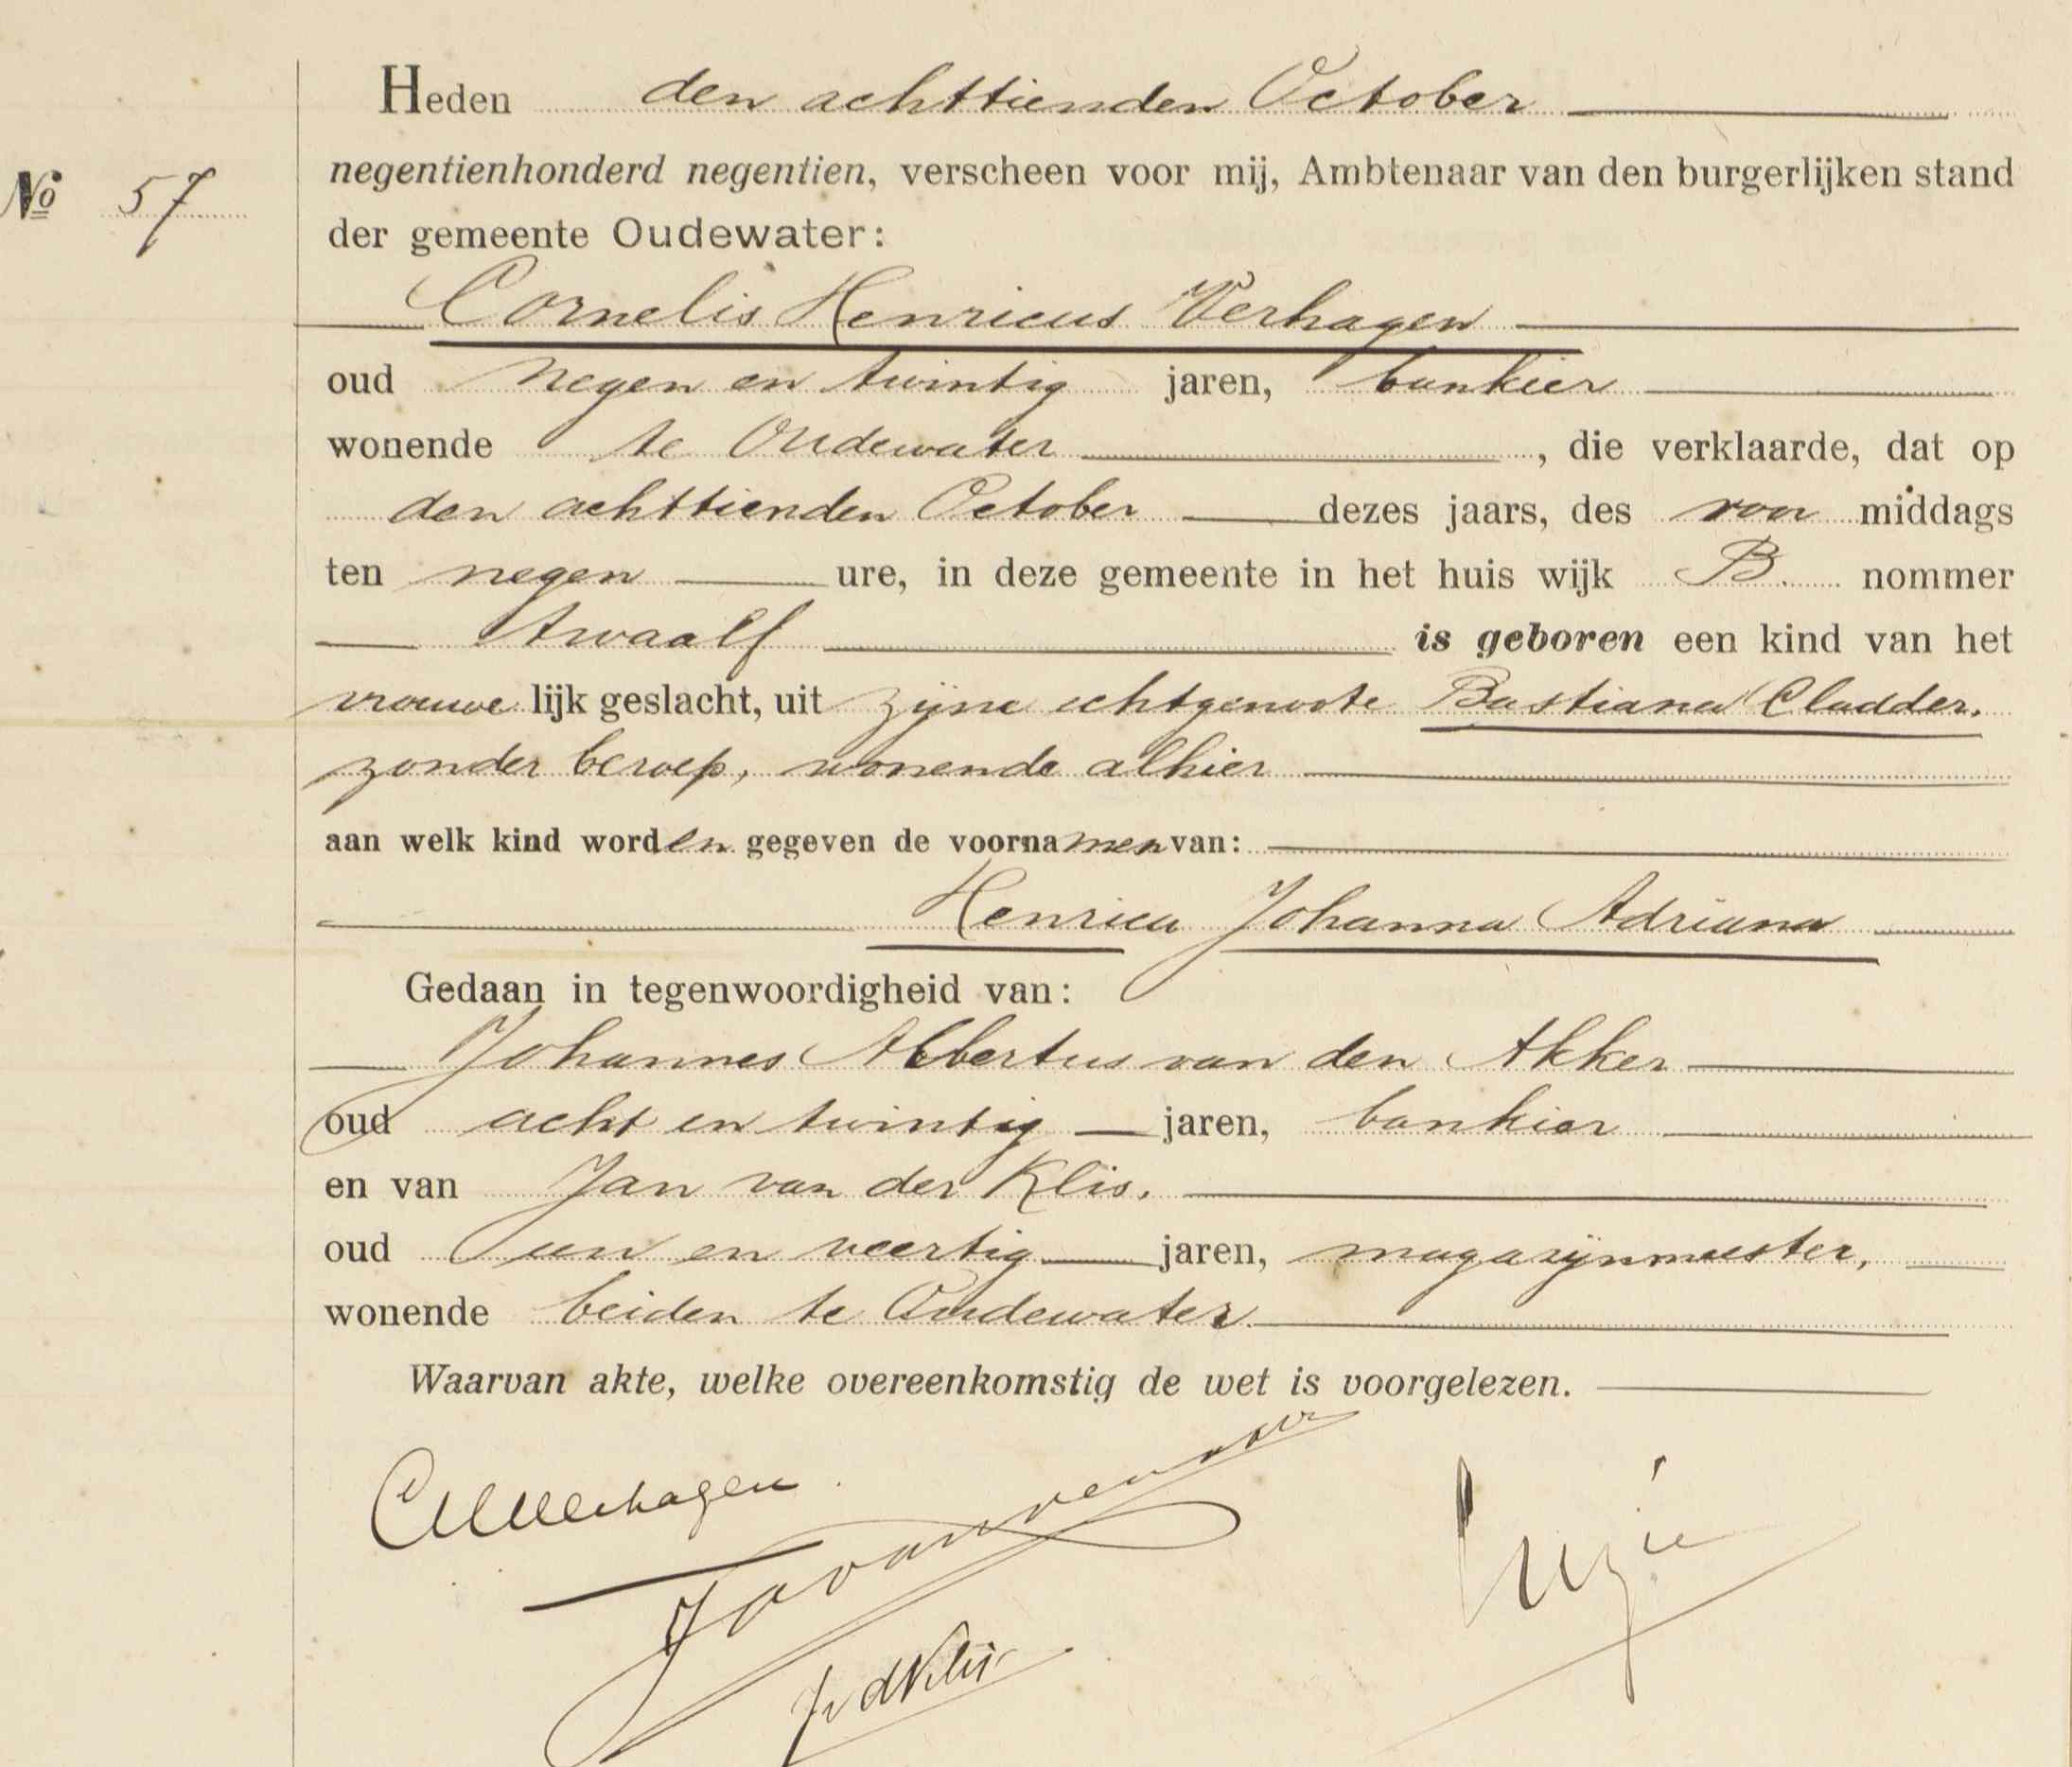 Heden den achttienden October
negentienhonderd negentien, verscheen voor mij, Ambtenaar van den burgerlijken stand
No 57
der gemeente Oudewater:
Cornelis Henricus Verhagen
oud negen en twintig jaren, bankier
wonende te Oudewater, die verklaarde, dat op
den achttienden October dezes jaars, des voor middags
ten negen ure, in deze gemeente in het huis wijk B. nommer
twaalf is geboren een kind van het
vrouwelijk geslacht, uit zijne echtgenoote Bastiana Cladder.
zonder beroep, wonende alhier
aan welk kind worden gegeven de voornamen van:
Henrica Johanna Adriana
Gedaan in tegenwoordigheid van:
Johannes Albertus van den Akker
oud acht en twintig jaren, bankier
en van Jan van der Klis.
oud een en veertig jaren, magazijnmeester,
wonende beiden te Oudewater.
Waarvan akte, welke overeenkomstig de wet is voorgelezen.
CHVerhagen
JvdKlis